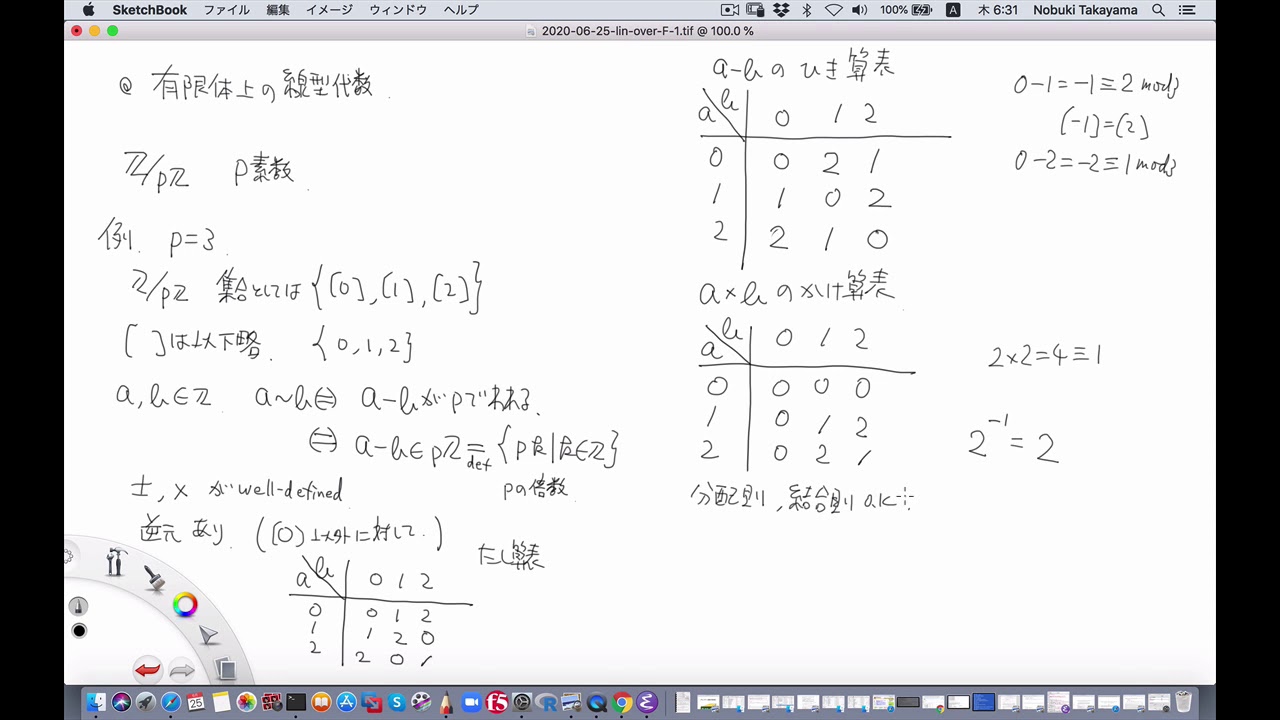 SketchBook ファイル 編集 イメージ ウィンドウ ヘルプ 100% A 木 6:31 Nobuki Takayama
2020-06-25-lin-over-F-1.tif @ 100.0 %
@ 有限体上の線型代数
ℤ/pℤ p素数
例. p=3.
ℤ/pℤ 集合としては {[0],[1],[2]}
[ ]は以下略. {0,1,2}
a,b∈ℤ a~b⇔ a-bがpでわれる.
⇔ a-b∈pℤ =def {pk|k∈ℤ}
pの倍数.
±,× がwell-defined
逆元 あり. ([0]以外に対して.)
たし算表
a b 0 1 2
0 0 1 2
1 1 2 0
2 2 0 1
a-bのひき算表
a b 0 1 2
0 0 2 1
1 1 0 2
2 2 1 0
0-1=-1≡2 mod3
[-1]=[2]
0-2=-2≡1 mod3
a×bのかけ算表
a b 0 1 2
0 0 0 0
1 0 1 2
2 0 2 1
2×2=4≡1
2⁻¹=2
分配則,結合則